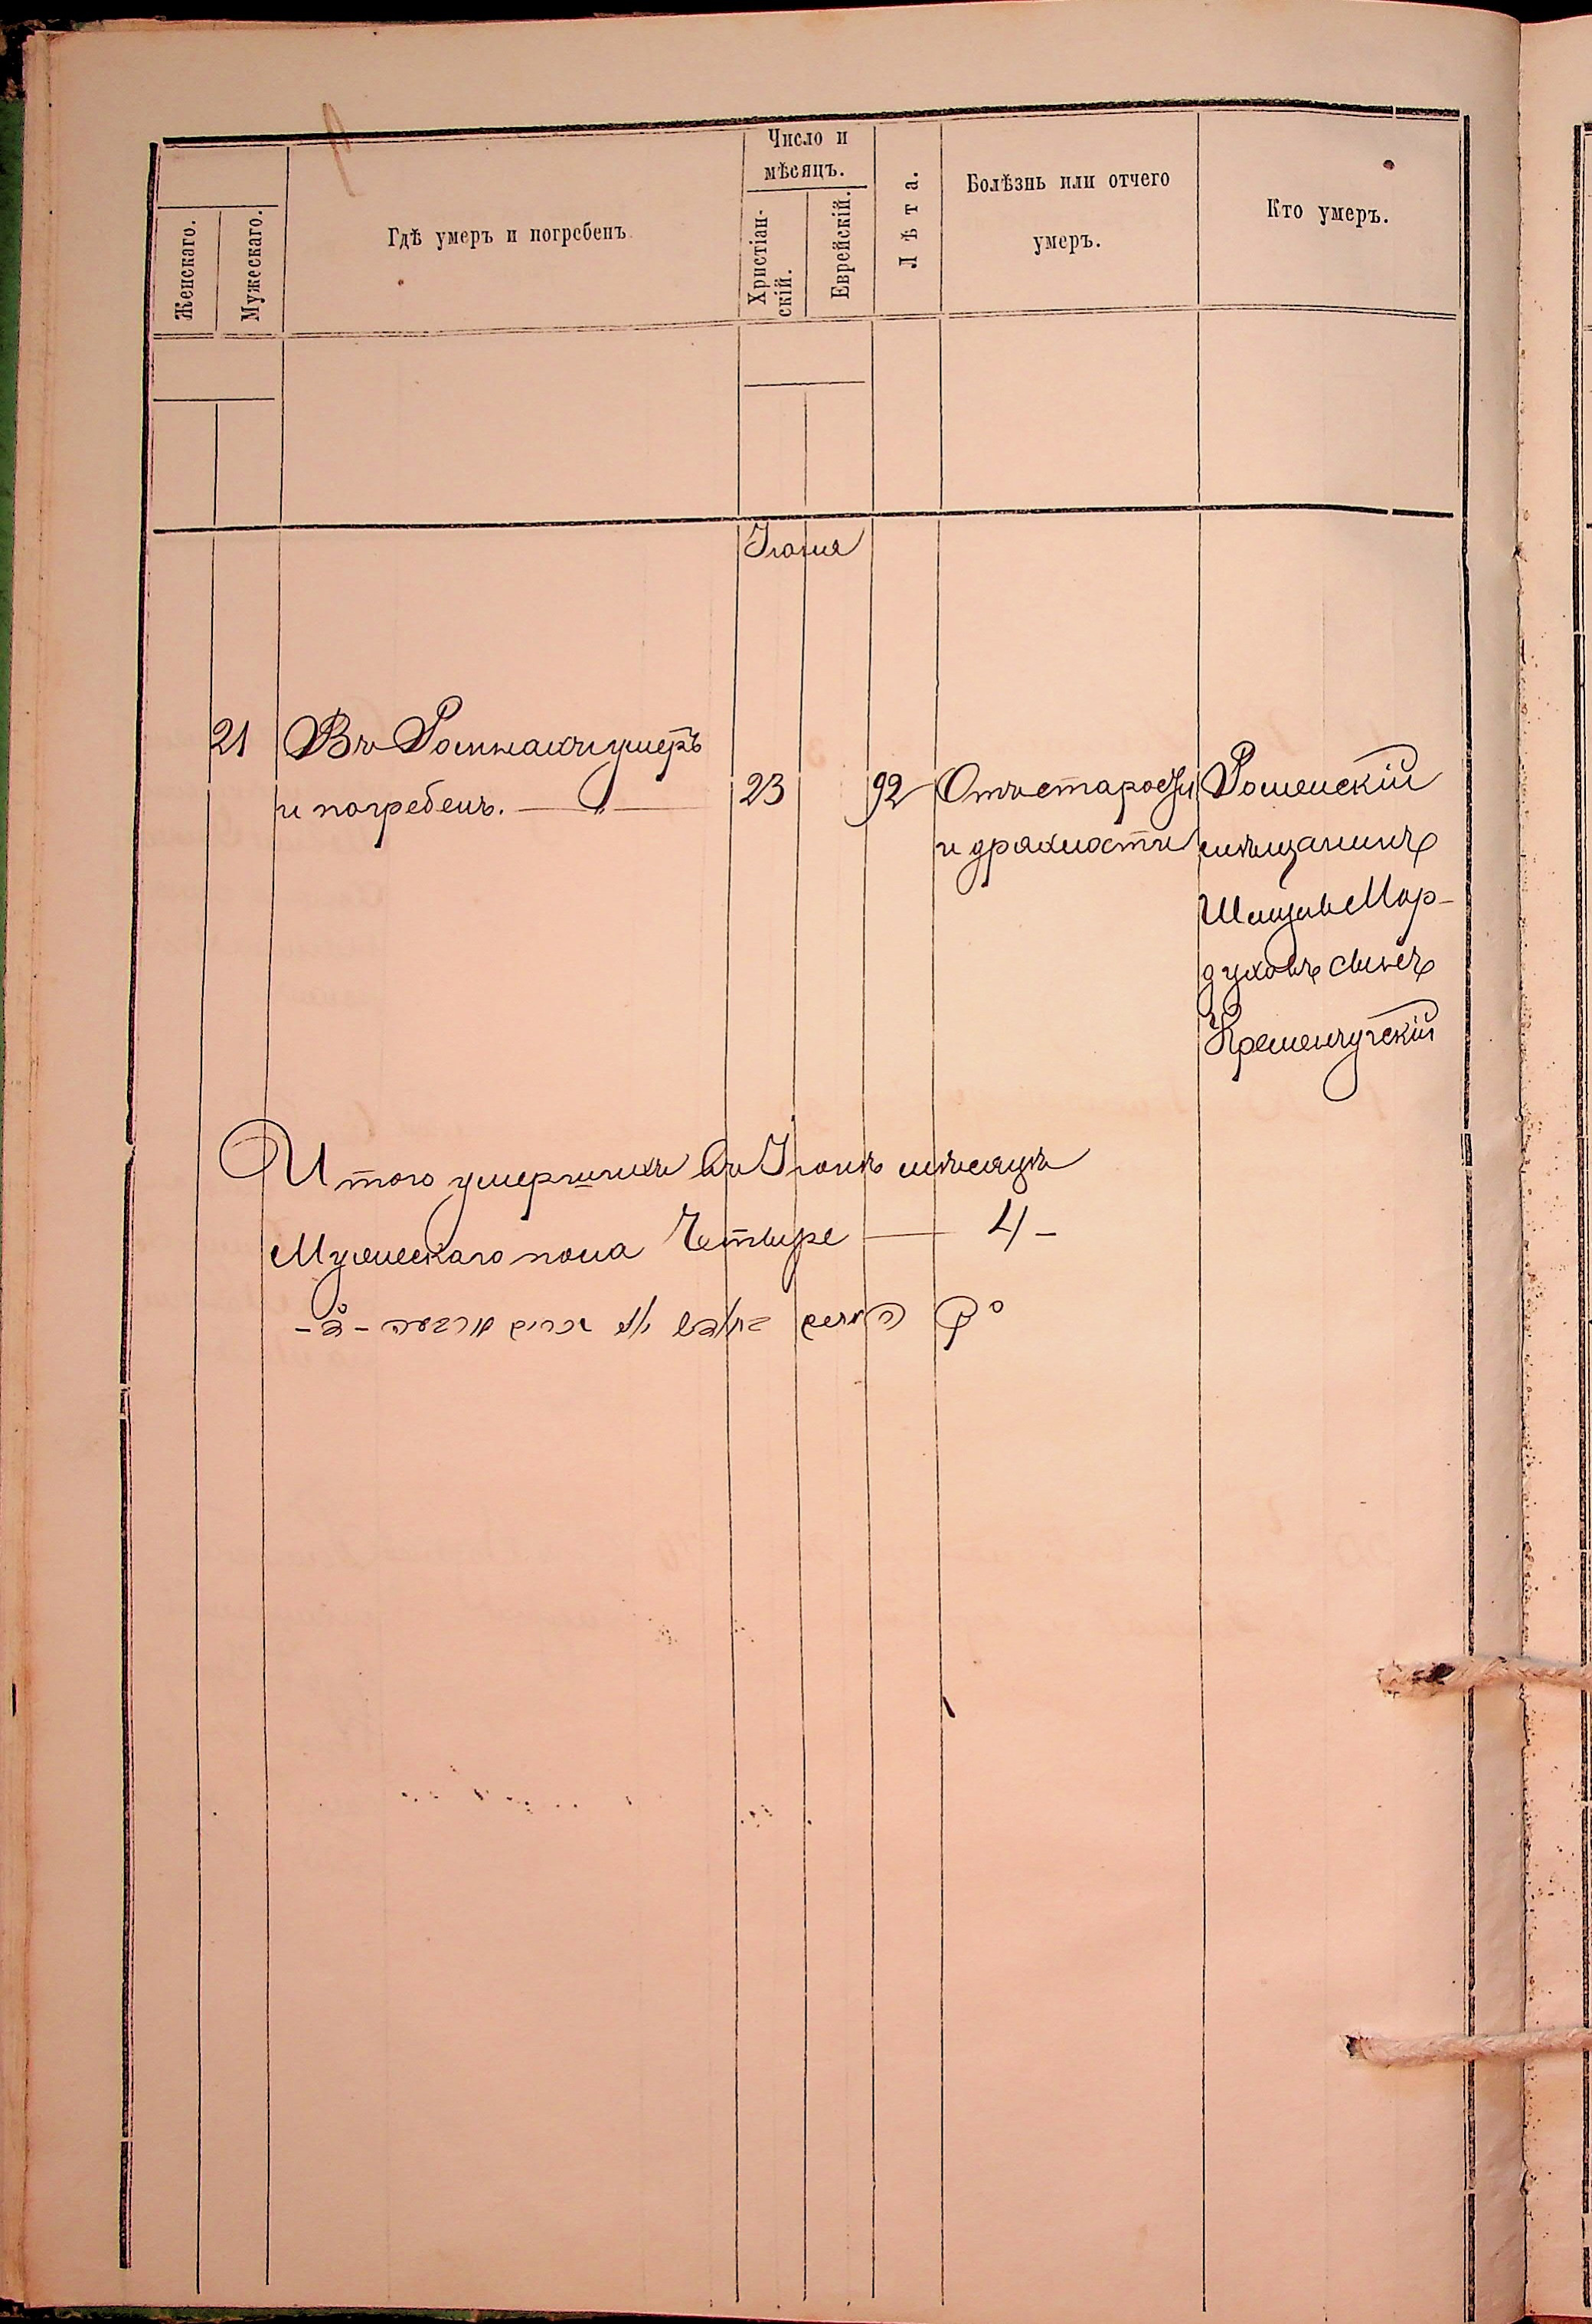 Число и
мѣсяцъ.
Женскаго.
Мужескаго.
Гдѣ умеръ и погребенъ
Христіан-
скій.
Еврейскій.
Лѣта.
Болѣзнь или отчего
умеръ.
Кто умеръ.
Іюня
21 Въ Ромнахъ умеръ
и погребенъ. — " —
23
92
Отъ старости
и дряхлости
Роменскій
мѣщанинъ
Мор-
духовъ сынъ
Кременчугскій
Итого умершихъ въ Іюнѣ мѣсяцѣ
Мужескаго пола Четыре — 4 –